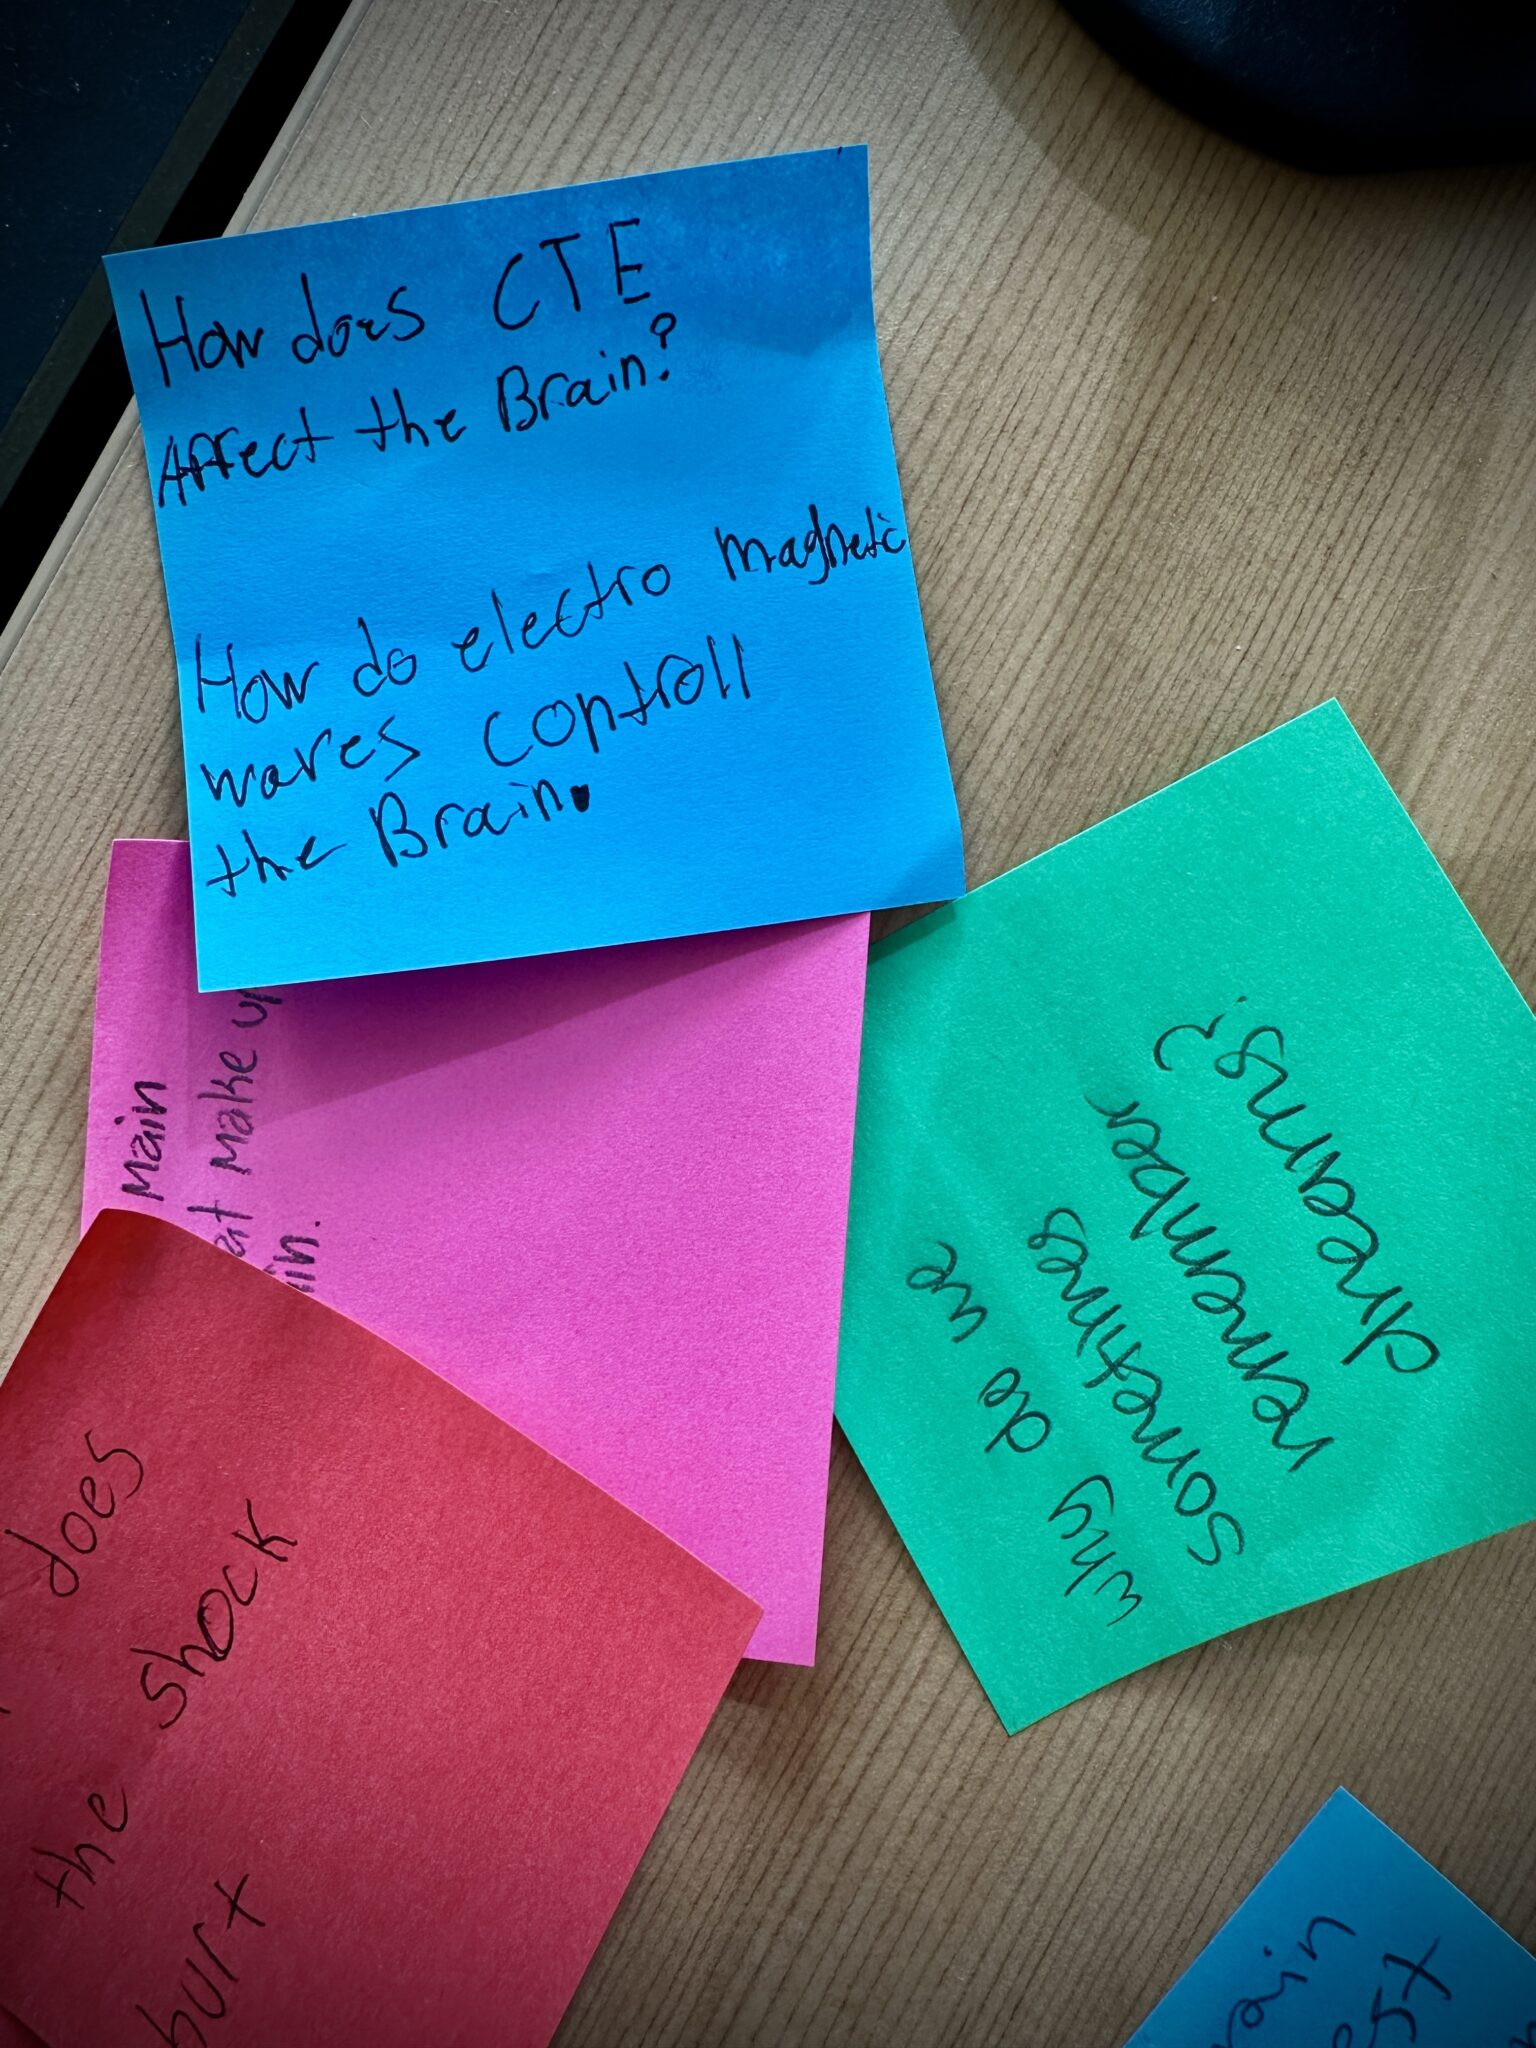 How does CTE
Affect the Brain?
How do electro magnetic
waves controll
the Brain.
Main
at make up
in.
why do we
sometimes
remember
dreams?
does
the shock
hurt
rain
est